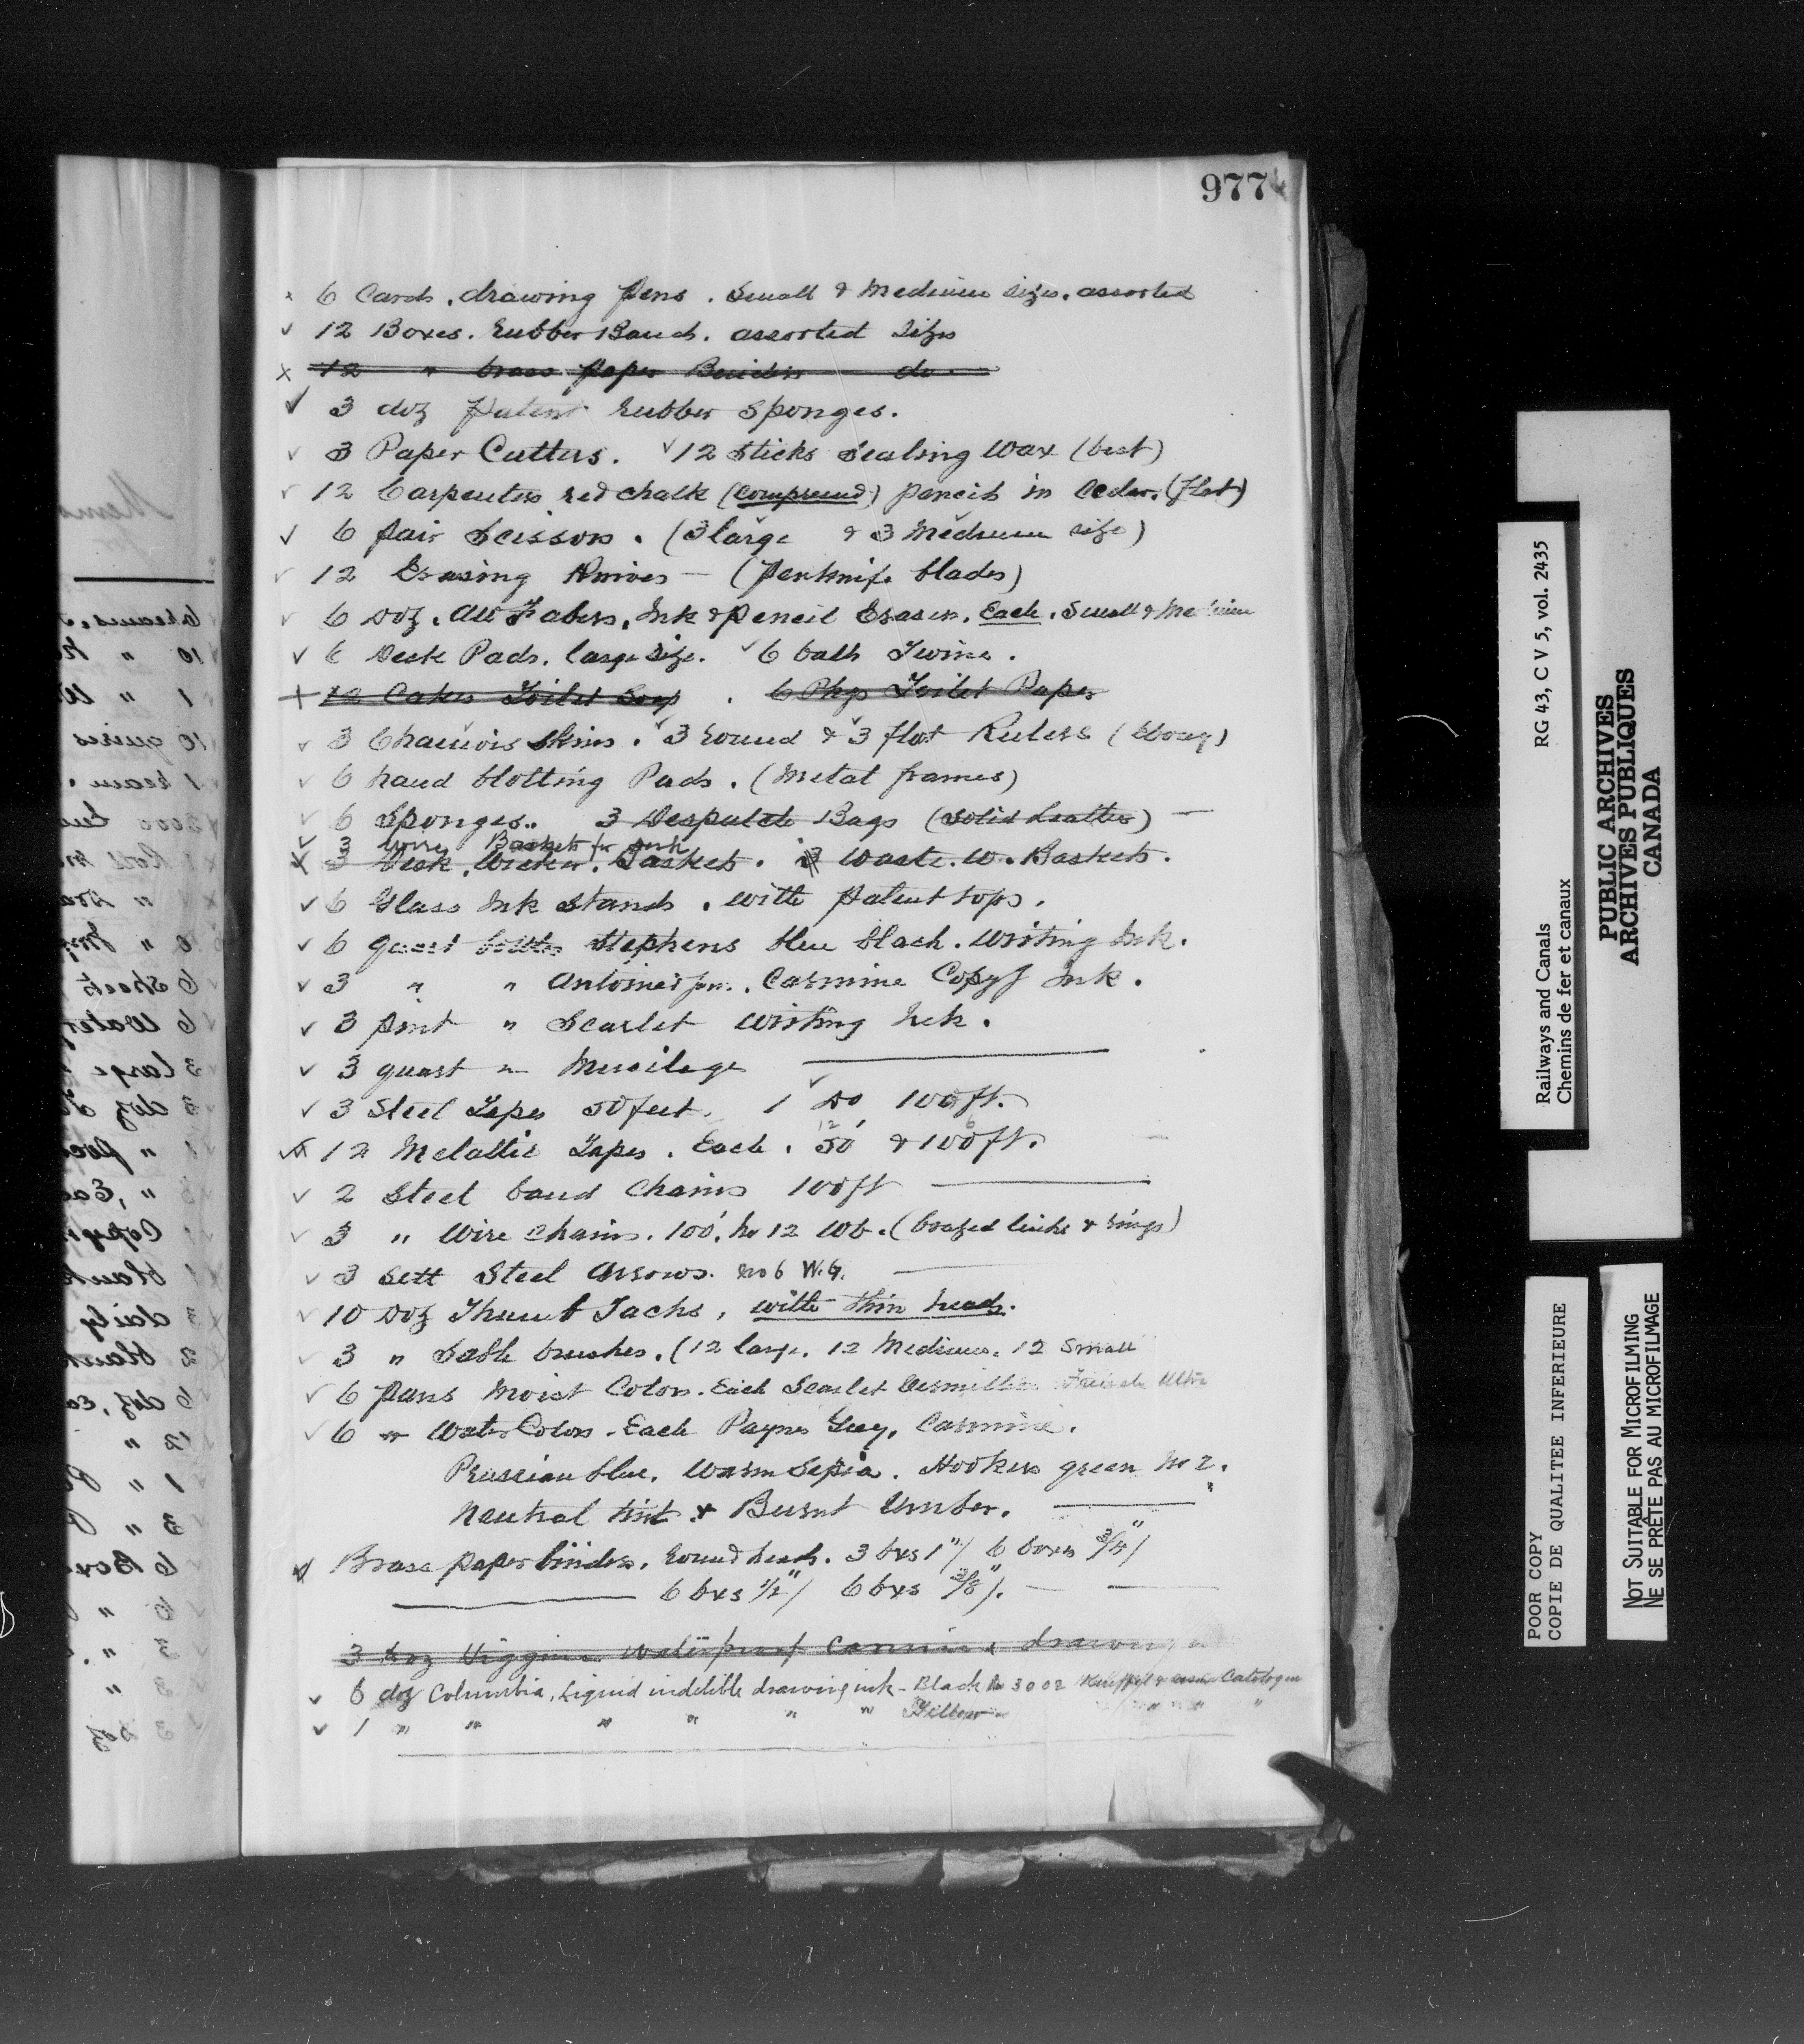 977
x 6 Cards. drawing Pens. Small & Medium sizes. assorted
✓ 12 Boxes. Rubber Bands. assorted Sizes
x 12 " brass paper Binders do
✓ 3 doz Patent Rubber Sponges.
✓ 3 Paper Cutters. ✓ 12 Sticks Sealing Wax (best)
✓ 12 Carpenters red chalk (compressed) pencils in Cedar. (flat)
✓ 6 pair Scissors. (3 large & 3 Medium size)
✓ 12 Erasing Knives — (Penknife blades)
✓ 6 Doz. AW Fabers. Ink & pencil Erasers. Each. Small & Medium
✓ 6 Desk Pads. large size. ✓ 6 balls Twine.
+ 12 Cakes Toilet Soap. 6 Pkgs Toilet Paper
✓ 3 Chamois Skins. ✓ 3 round & ✓ 3 flat Rulers (Ebony)
✓ 6 hand blotting Pads. (Metal frames)
✓ 6 Sponges.. 3 Despatch Bags (Solid Leather) —
✓ 3 Wire Baskets for desk
x 3 Desk. Wicker. Baskets. 3 Waste. W. Baskets.
✓ 6 Glass Ink Stands. with Patent tops.
✓ 6 quart bottles Stephens blue black. Writing Ink.
✓ 3 " " Antoines . Carmine Copyg Ink.
✓ 3 pint " Scarlet Writing Ink.
✓ 3 quart " Mucilage
✓ 3 Steel Tapes 50 feet. 1 ✓ Do 100 ft.
12 6
✓ 12 Metallic Tapes. Each. 50' & 100 ft.
✓ 2 Steel band Chains 100 ft
✓ 3 " Wire Chains. 100'. No 12 W.G. (brazed links & rings)
✓ 3 Sett Steel Arrows. No 6 W.G.
✓ 10 Doz Thumb Tacks, with thin heads.
✓ 3 " Sable brushes. (12 large. 12 Medium. 12 Small
✓ 6 pans Moist Colors. Each Scarlet Vermillion French Ultra
✓ 6 " Water Colors. Each Paynes Grey, Carmine.
Prussian blue. Warm Sepia. Hookers green No 2.
Neutral tint & Burnt Umber.
Brass paper binders. round heads. 3 bxs 1"/ 6 boxes 3/4"/
6 bxs 1/2"/ 6 bxs 3/8"/.
3 doz Higgins waterproof Carmine drawing
✓ 6 doz Columbia, Liquid indelible drawing ink - Black No 3002 Keuffel & Esser Catalogue
✓ 1 " " " " " " Yellow " " " "
Railways and Canals RG 43, C V 5, vol. 2435
Chemins de fer et canaux
PUBLIC ARCHIVES
ARCHIVES PUBLIQUES
CANADA
POOR COPY
COPIE DE QUALITEE INFERIEURE
NOT SUITABLE FOR MICROFILMING
NE SE PRÊTE PAS AU MICROFILMAGE